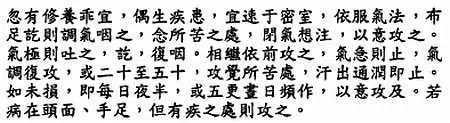 忽有修養乖宜，偶生疾患，宜速于密室，依服氣法，布
足訖則調氣咽之，念所苦之處，閉氣想注，以意攻之。
氣極則吐之，訖，復咽。相繼依前攻之，氣急則止，氣
調復攻，或二十至五十，攻覺所苦處，汗出通潤即止。
如未損，即每日夜半，或五更晝日頻作，以意攻及。若
病在頭面、手足，但有疾之處則攻之。